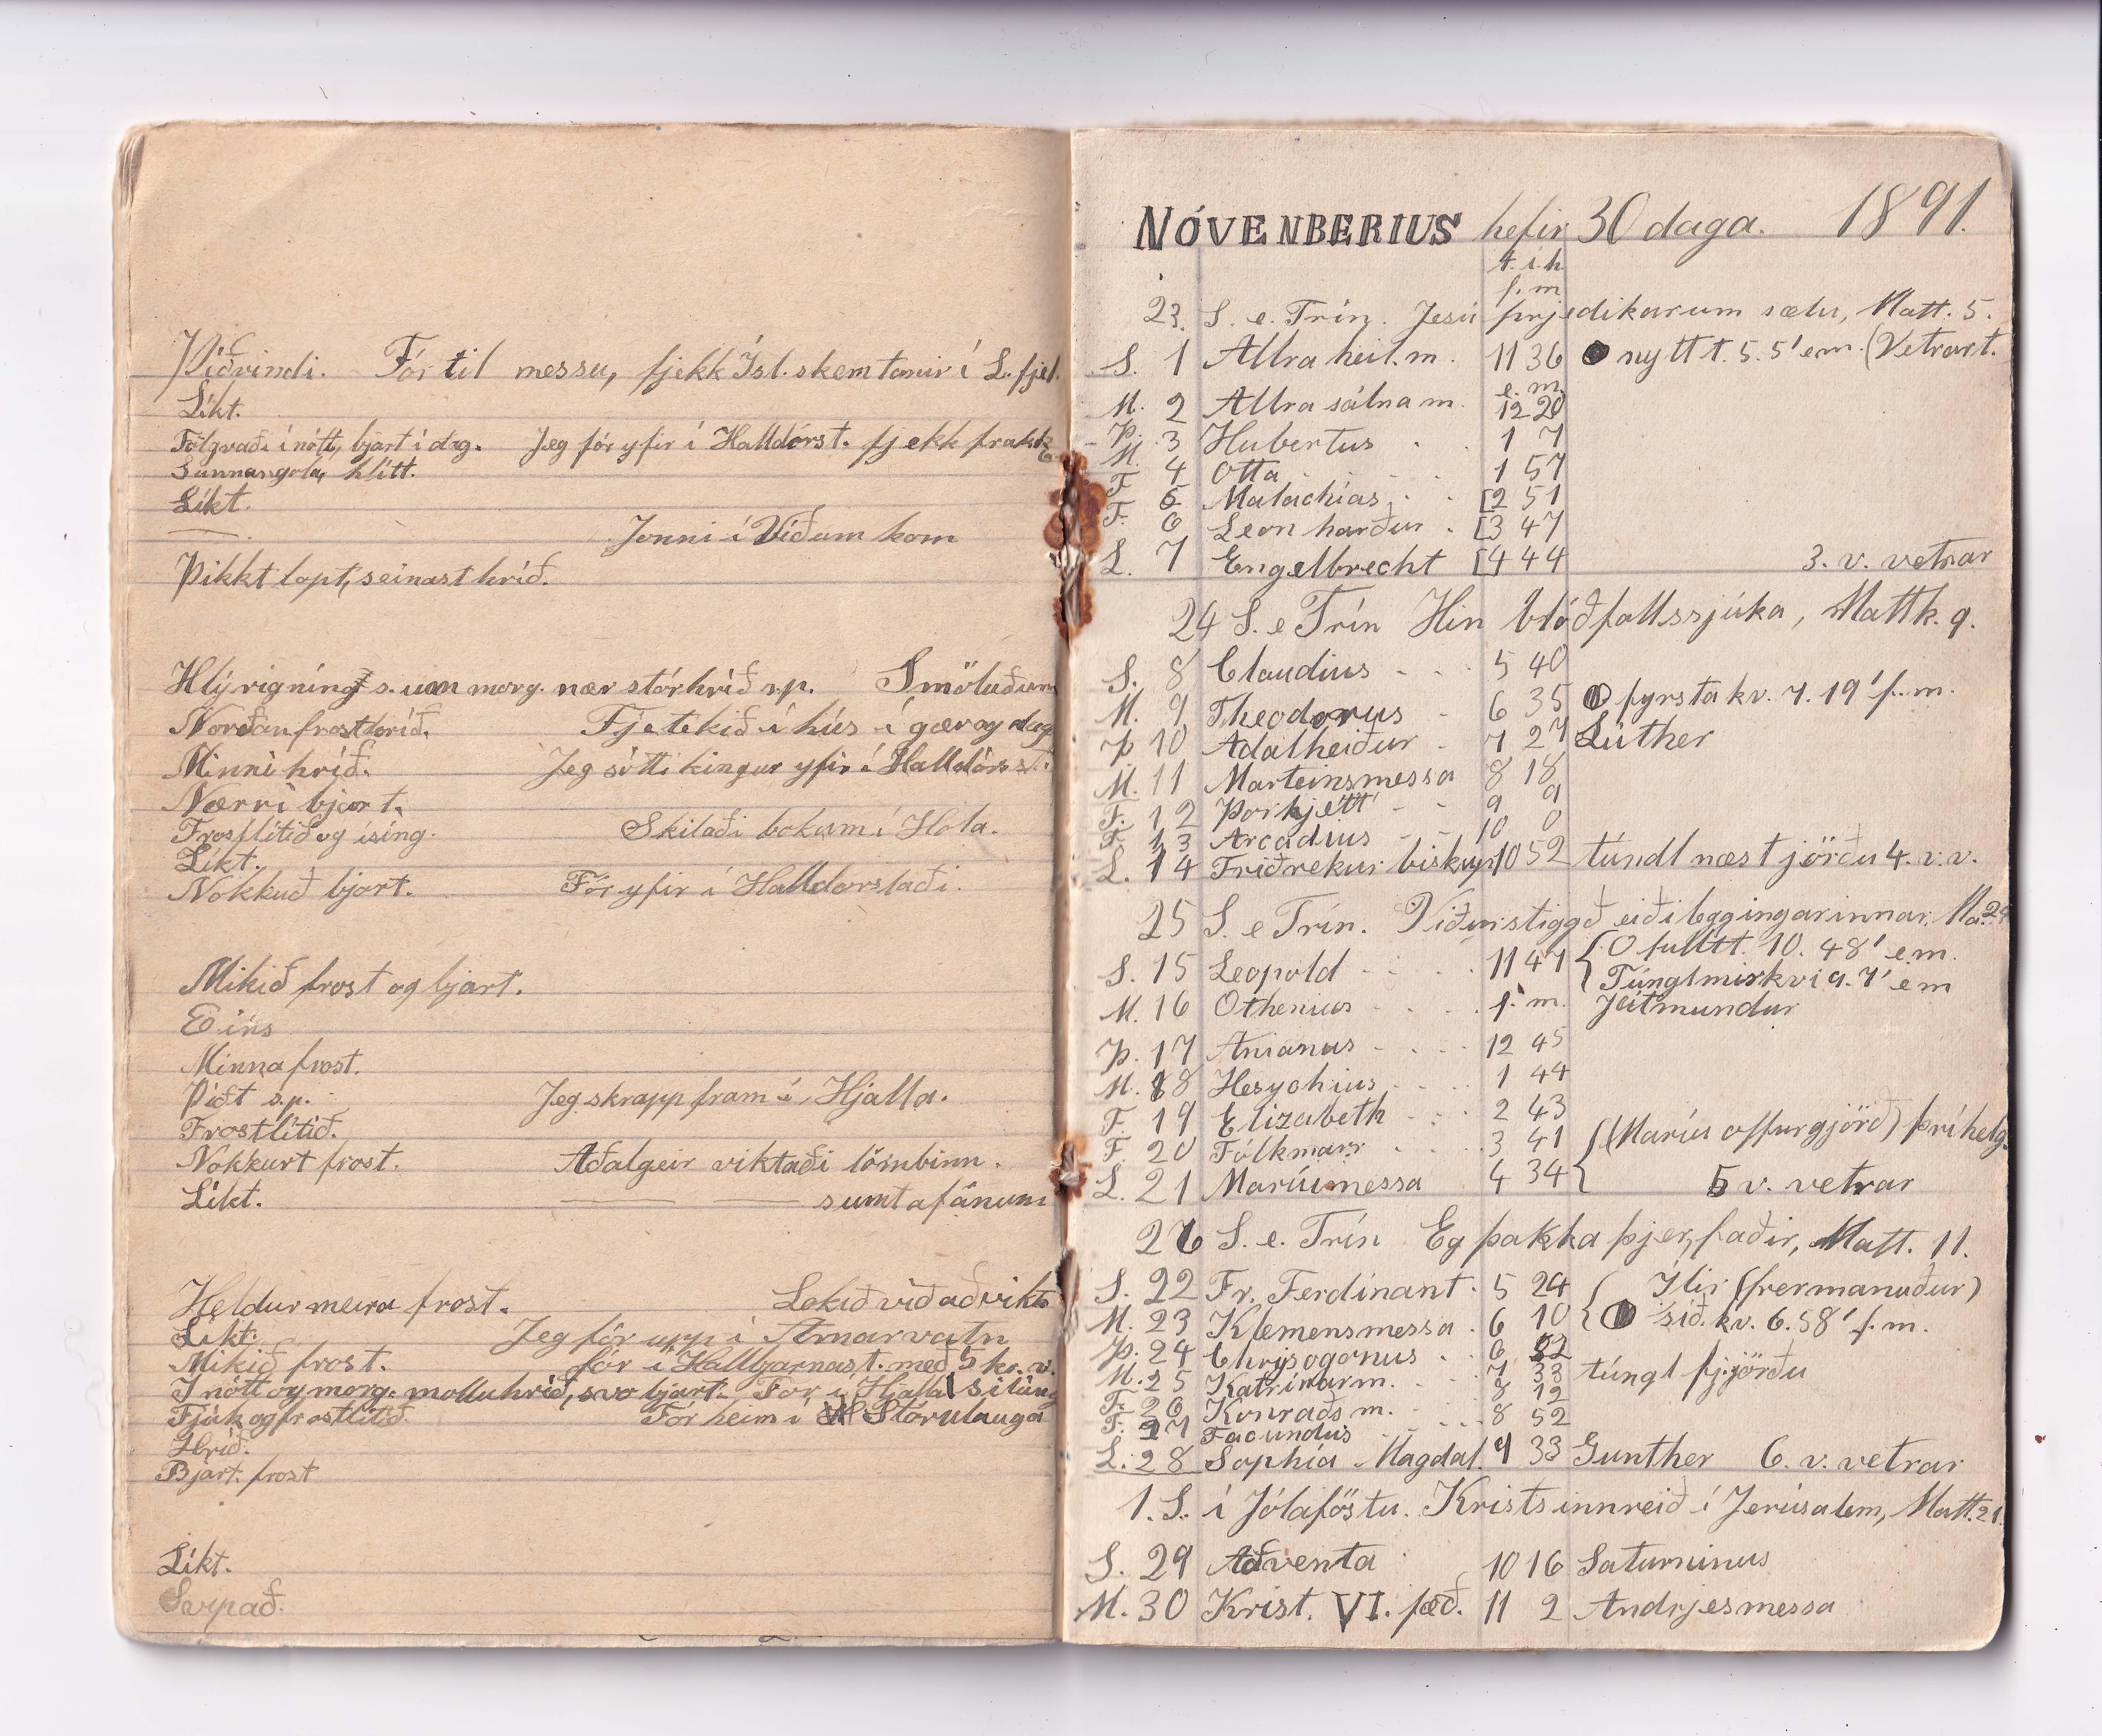 Þíðvindi. Fór til messu, fjekk Ísl. skemtanir í L. fjel.
Líkt.
Fölgvaði í nótt, bjart í dag. Jeg fór yfir í Halldórst. fjekk frakk
Sunnangola, hlítt.
Líkt.
— Jonni í Víðum kom
Þikkt lopt, seinast hríð.
Hlý rigning s. um morg. nær stórhríð s.p. Smöluðum
Norðanfrosthríð. Fje tekið í hús í gær og dag
Minni hríð. Jeg sótti kingur yfir í Halldórsst.
Nærri bjart.
Frostlítið og ísing. Skilaði bókum í Hóla.
Líkt.
Nokkuð bjart. Fór yfir í Halldorstaði.
Mikið frost og bjart.
Eins
Minna frost.
Þiðt s.p. Jeg skrapp fram í Hjalla.
Frostlítið.
Nokkurt frost. Aðalgeir viktaði lömbinn.
Líkt. — — sumt af ánum
Heldur meira frost. Lokið við að vikta
Líkt. Jeg fór upp í Arnarvatn
Mikið frost. fór í Hallbjarnast. með 5 kr. v.
Í nótt og morg. molluhríð, svo bjart. Fór í Hjalla silung
Fjúk og frostlítið. Fór heim í Stórulauga
Hríð.
Bjart. frost
Líkt.
Svipað.
NÓVENBERIUS hefir 30 daga. 1891.
t. í. h.
f. m
23. S. e. Trín. Jesú prjedikarum sælu, Matt. 5.
S. 1 Allra heil. m. 11 36 ● nýtt t. 5. 5' em. (Vetrart.
e. m.
M. 2 Allra sálna m. 12 20
Þ. 3 Hubertus . 1 7
M. 4 Otta 1 57
F 5 Malachias . . [2 51
F. 6 Leonharður . [3 47
L. 7 Engelbrecht [4 44 3. v. vetrar
24 S. e Trín Hin blóðfallssjúka, Matth. 9.
S. 8 Claudius - - . 5 40
M. 9 Theodorus - 6 35 fyrsta kv. 7. 19' f. m.
Þ 10 Adalheiður . 7 27 Lúther
M. 11 Marteinsmessa 8 18
F. 12 Þorkjétt - - 9 9
F. 13 Arcadius - - 10 0
L. 14 Friðrekur biskup 10 52 túndl næst jörðu 4. v. v.
25 S. e Trín. Viðurstiggð eiðileggingarinnar, Ma. 24
S. 15 Leopold - - . . 11 47 { O fullt t. 10. 48' em.
Túnglmirkvi 9. 7' em
M. 16 Othenius - . . . f. m. Játmundur
Þ. 17 Anianus - . . . 12 45
M. 18 Hesychius . . . . 1 44
F. 19 Elizabeth - . . 2 43
F. 20 Fólkmarr . . . 3 41 { (Maríu offurgjörð) þríhelg.
L. 21 Maríumessa 4 34 5 v. vetrar
26 S. e. Trín Eg þakka þjer, faðir, Matt. 11.
S. 22 Fr. Ferdinant . 5 24 { Ílir (frermánuður)
M. 23 Klemensmessa . 6 10 { síð. kv. 6. 58' f. m.
Þ. 24 Chrysogonus . . 6 52
M. 25 Katrínarm. . . 7 33 túngl fj. jörðu
F. 26 Konraðs m. . 8 12
F. 27 Facundus - - . . 8 52
L. 28 Sophía Magdal. 9 33 Gunther 6. v. vetrar
1. S. í Jólaföstu. Krists innreið í Jerúsalem, Matt. 21.
S. 29 Aðventa . 10 16 Saturninus
M. 30 Krist. VI. fæð. 11 2 Andrjesmessa